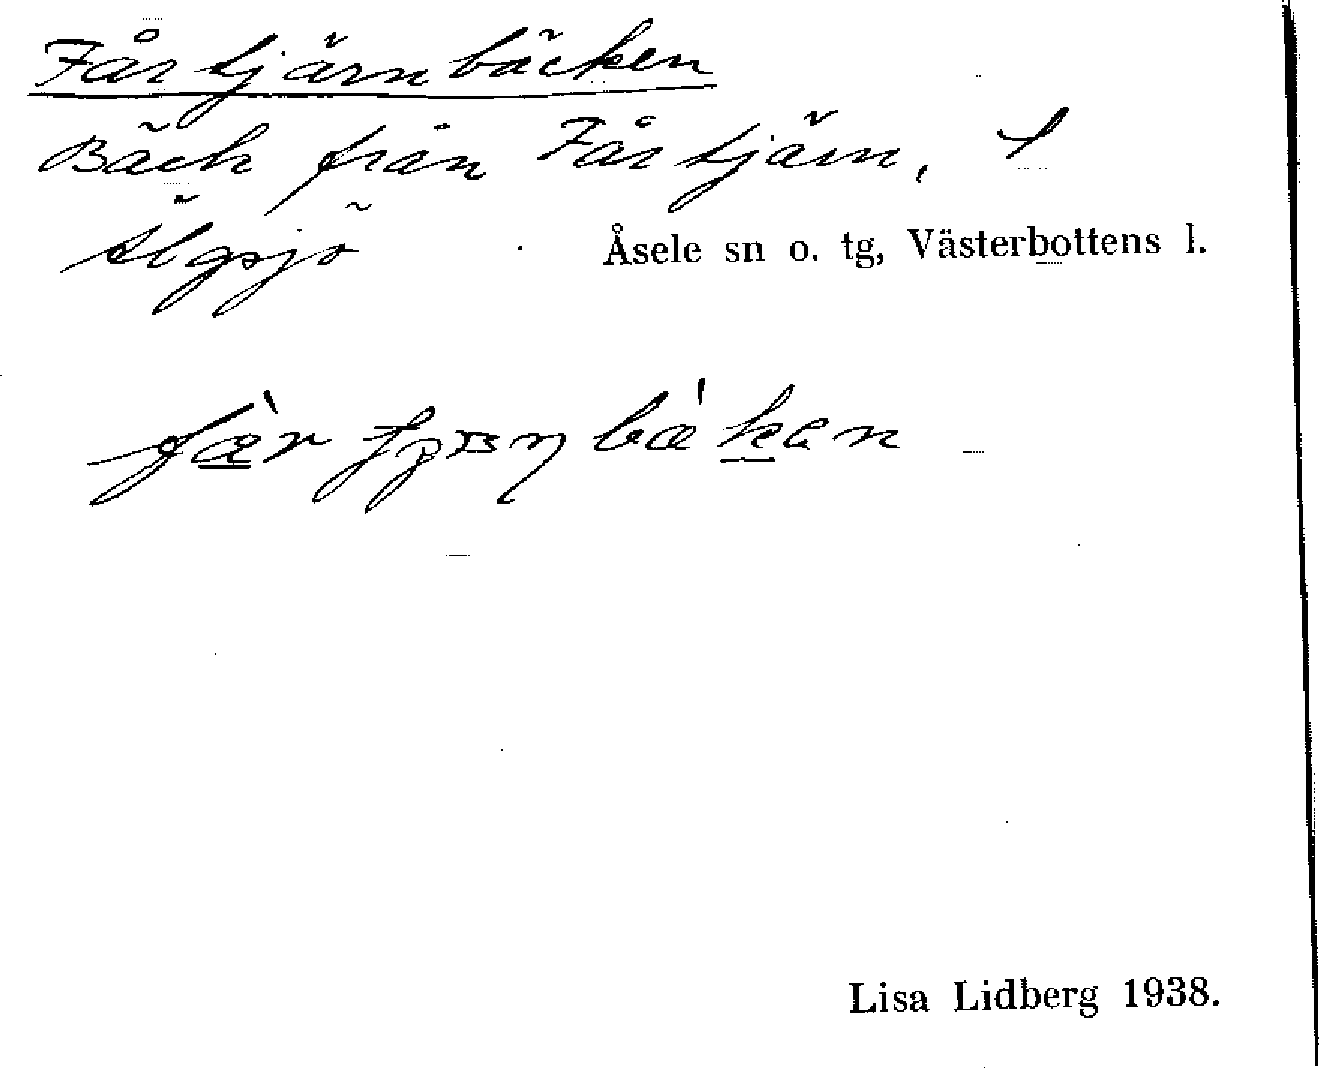 Fårtjärnbäcken
Bäck från Fårtjärn,
Älgsjö
Åsele sn o. tg, Västerbottens l.
Lisa Lidberg 1938.